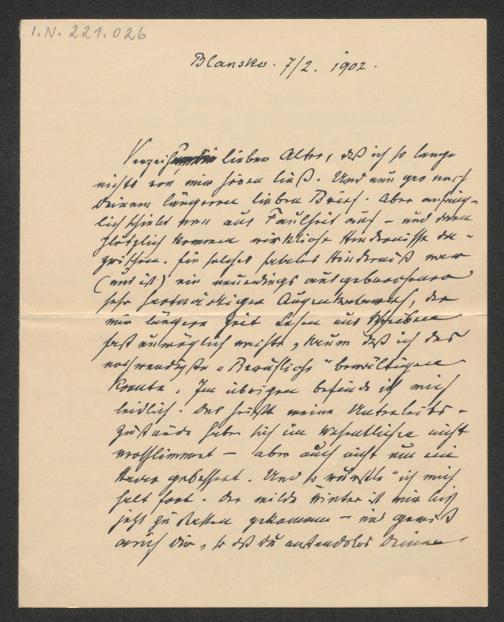 I.N. 221.026
Blansko. 7/2. 1902.
Verzeih, lieber Alter, daß ich so lange
nichts von mir hören ließ. Und nun gar nach
Deinem längeren lieben Brief. Aber anfäng-
lich schiebt man aus Faulheit auf – und dann
plötzlich kommen wirkliche Hindernisse da-
zwischen. Ein solches Hinderniß war
(und ist) ein neuerdings ausgebrochener
sehr hartnäckiger Augenkatarrh, der
mir längere Zeit Lesen und Schreiben
fast unmöglich machte, kaum daß ich das
nothwendigste „Berufliche“ bewältigen
konnte. Im übrigen befinde ich mich
leidlich. Das heißt meine Unterleibs-
zustände haben sich im Wesentlichen nicht
verschlimmert – aber auch nicht um ein
Haar gebessert. Und so „wurstle“ ich mich
halt fort. Der milde Winter ist mir bis
jetzt zu statten gekommen – und gewiß
auch Dir, so daß Du anstandslos Deinen